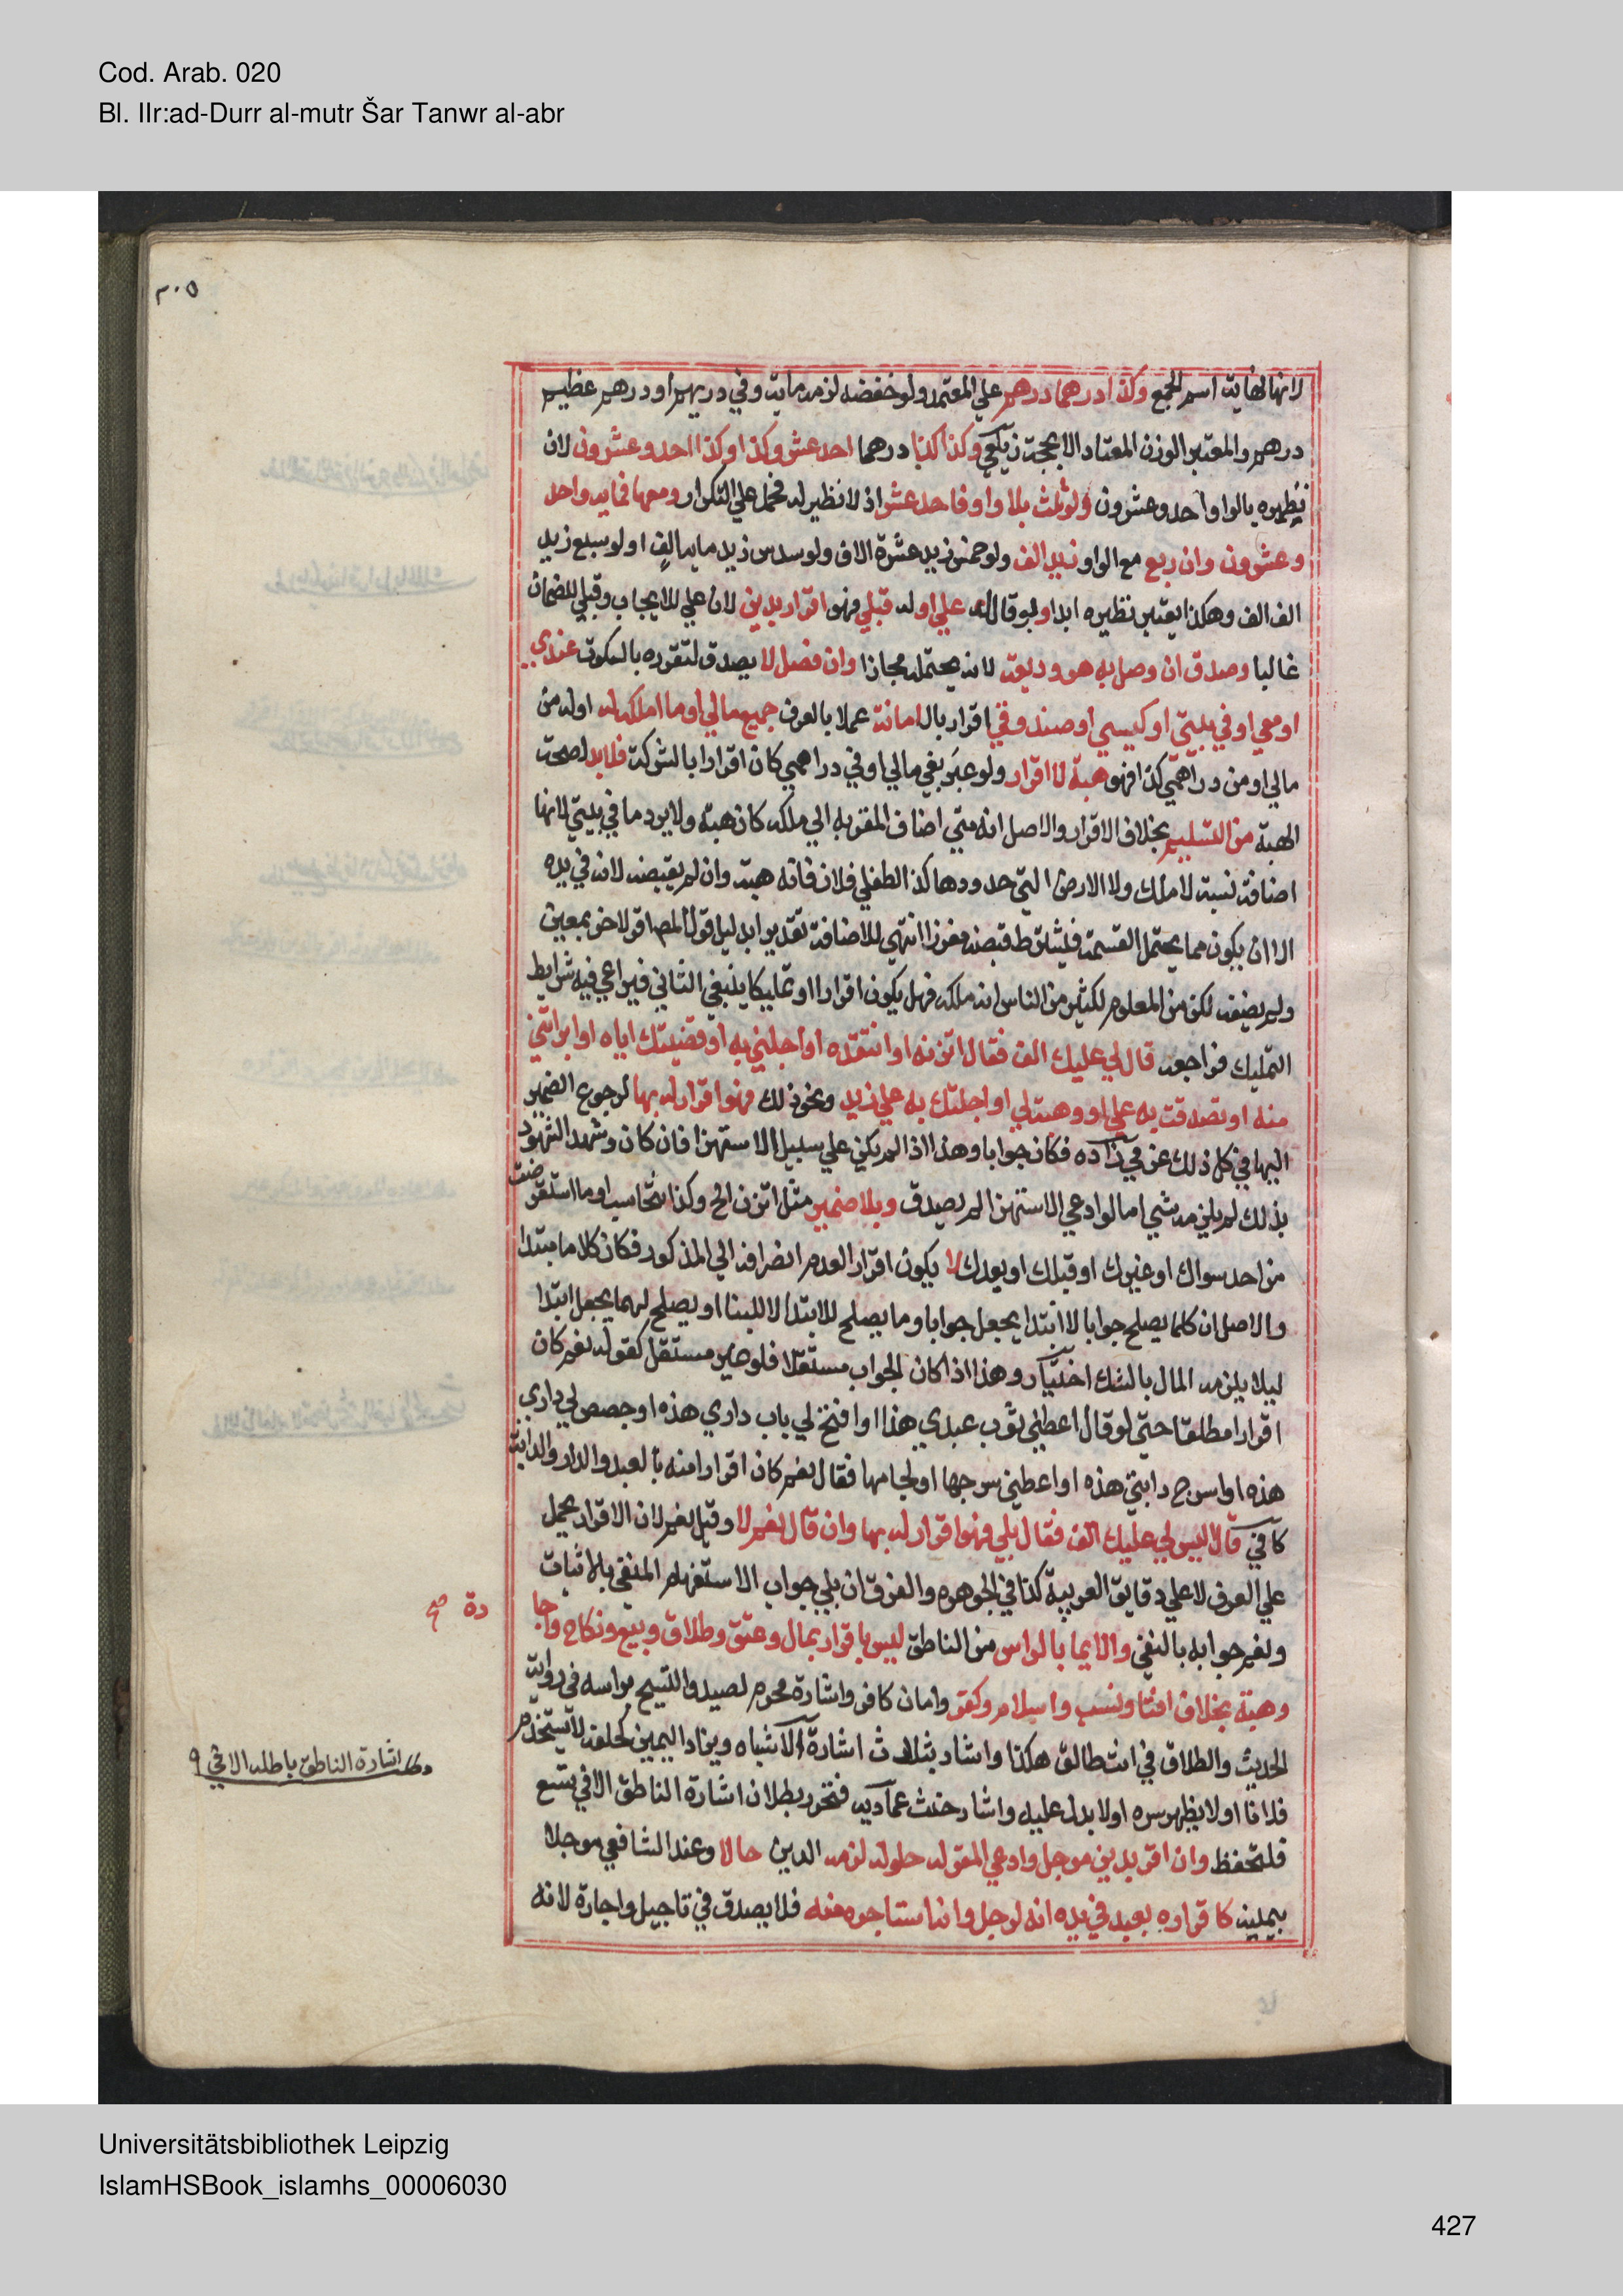 Cod. Arab. 020
Bl. IIr:ad-Durr al-mutr Šar Tanwr al-abr
٣٠٥
لانها نهاية اسم الجمع وكذا درهما درهم علي المعتمد ولو خفضه لزمه ماية وفي دريهم او درهم عظيم
درهم والمعتبر الوزن المعتاد الا بحجة زيلعي وكذا كذا درهما احد عشر وكذا وكذا احد وعشرون لان
نظيره بالواو احد وعشرون ولو ثلث بلا واو فاحد عشر اذ لا نظير له فحمل علي التكرار ومعها فماية واحد
وعشرون وان ربع مع الواو زيد الف ولو خمس زيد عشرة الاف ولو سدس زيد ماية الف ولو سبع زيد
الف الف وهكذا يعتبر نظيره ابدا ولو قال له علي او له قبلي فهو اقرار بدين لان علي للايجاب وقبلي للضمان
غالبا وصدق ان وصل به هو وديعة لانه يحتمله مجازا وان فصل لا يصدق لتقرره بالسكوت عندي
او معي او في بيتي او كيسي او صندوقي اقرار بالامانة عملا بالعرف جميع مالي او ما املكه له او له من
مالي او من دراهمي كذا فهو هبة لا اقرار ولو عبر بفي مالي او في دراهمي كان اقرارا بالشركة فلا بد لصحة
الهبة من التسليم بخلاف الاقرار والاصل انه متي اضاف المقر به الي ملكه كان هبة ولا يرد ما في بيتي لانها
اضافة نسبة لا ملك ولا الارض التي حدودها كذا لطفلي فلان فانه هبة وان لم يقبضه لانه في يده
الا ان يكون مما يحتمل القسمة فيشترط قبضه مفرزا انتهي للاضافة تقديرا بدليل قول المص اقر لاخر بمعين
ولم يضفه لكن من المعلوم لكثير من الناس انه ملكه فهل يكون اقرارا او تمليكا ينبغي الثاني فيراعي فيه شرايط
التمليك فراجعه قال لي عليك الف فقال اتزنه او انتقده او اجلني به او قضيتك اياه او ابراتني
منه او تصدقت به علي او وهبته لي او احلتك به علي زيد ونحو ذلك فهو اقرار له بها لرجوع الضمير
اليها في كل ذلك عزمي زاده فكان جوابا وهذا اذا لم يكن علي سبيل الاستهزا فان كان وشهد الشهود
بذلك لم يلزمه شي اما لو ادعي الاستهزا لم يصدق وبلا ضمير مثل اتزن الخ وكذا نتحاسب او ما استقرضت
من احد سواك او غيرك او قبلك او بعدك لا يكون اقرارا لعدم انصرافه الي المذكور فكان كلاما مبتدا
والاصل ان كلما يصلح جوابا لا ابتدا يجعل جوابا وما يصلح للابتدا لا للبنا او يصلح لهما يجعل ابتدا
ليلا يلزمه المال بالشك اختيار وهذا اذا كان الجواب مستقلا فلو غير مستقل كقوله نعم كان
اقرارا مطلقا حتي لو قال اعطني ثوب عبدي هذا او افتح لي باب داري هذه او جصص لي داري
هذه او اسرج دابتي هذه او اعطني سرجها او لجامها فقال نعم كان اقرارا منه بالعبد والدار والدابة
كافي قال اليس لي عليك الف فقال بلي فهو اقرار له بها وان قال نعم لا وقيل نعم لان الاقرار يحمل
علي العرف لا علي دقايق العربية كذا في الجوهره والفرق ان بلي جواب الاستفهام المنفي بالاثبات
ونعم جوابه بالنفي والايما بالراس من الناطق ليس باقرار بمال وعتق وطلاق وبيع ونكاح واجا
دة صح
وهبة بخلاف افتا ونسب واسلام وكفر وامان كافر واشارة محرم لصيد والشيخ براسه في رواية
الحديث والطلاق في انت طالق هكذا واشار بثلاث اشارة الاشباه ويزاد اليمين كحلفه لا يستخدم
فلانا او لا يظهر سره او لا يدل عليه واشار حنث عمادية فتحرر بطلان اشارة الناطق الا في تسع
مطلب اشارة الناطق باطله الا في ٩
فليحفظ وان اقر بدين موجل وادعي المقر له حلوله لزمه الدين حالا وعند الشافعي موجلا
بيمينه كاقراره بعبد في يده انه لرجل وانه استاجره منه فلا يصدق في تاجيل واجارة لانه
Universitätsbibliothek Leipzig
IslamHSBook_islamhs_00006030
427